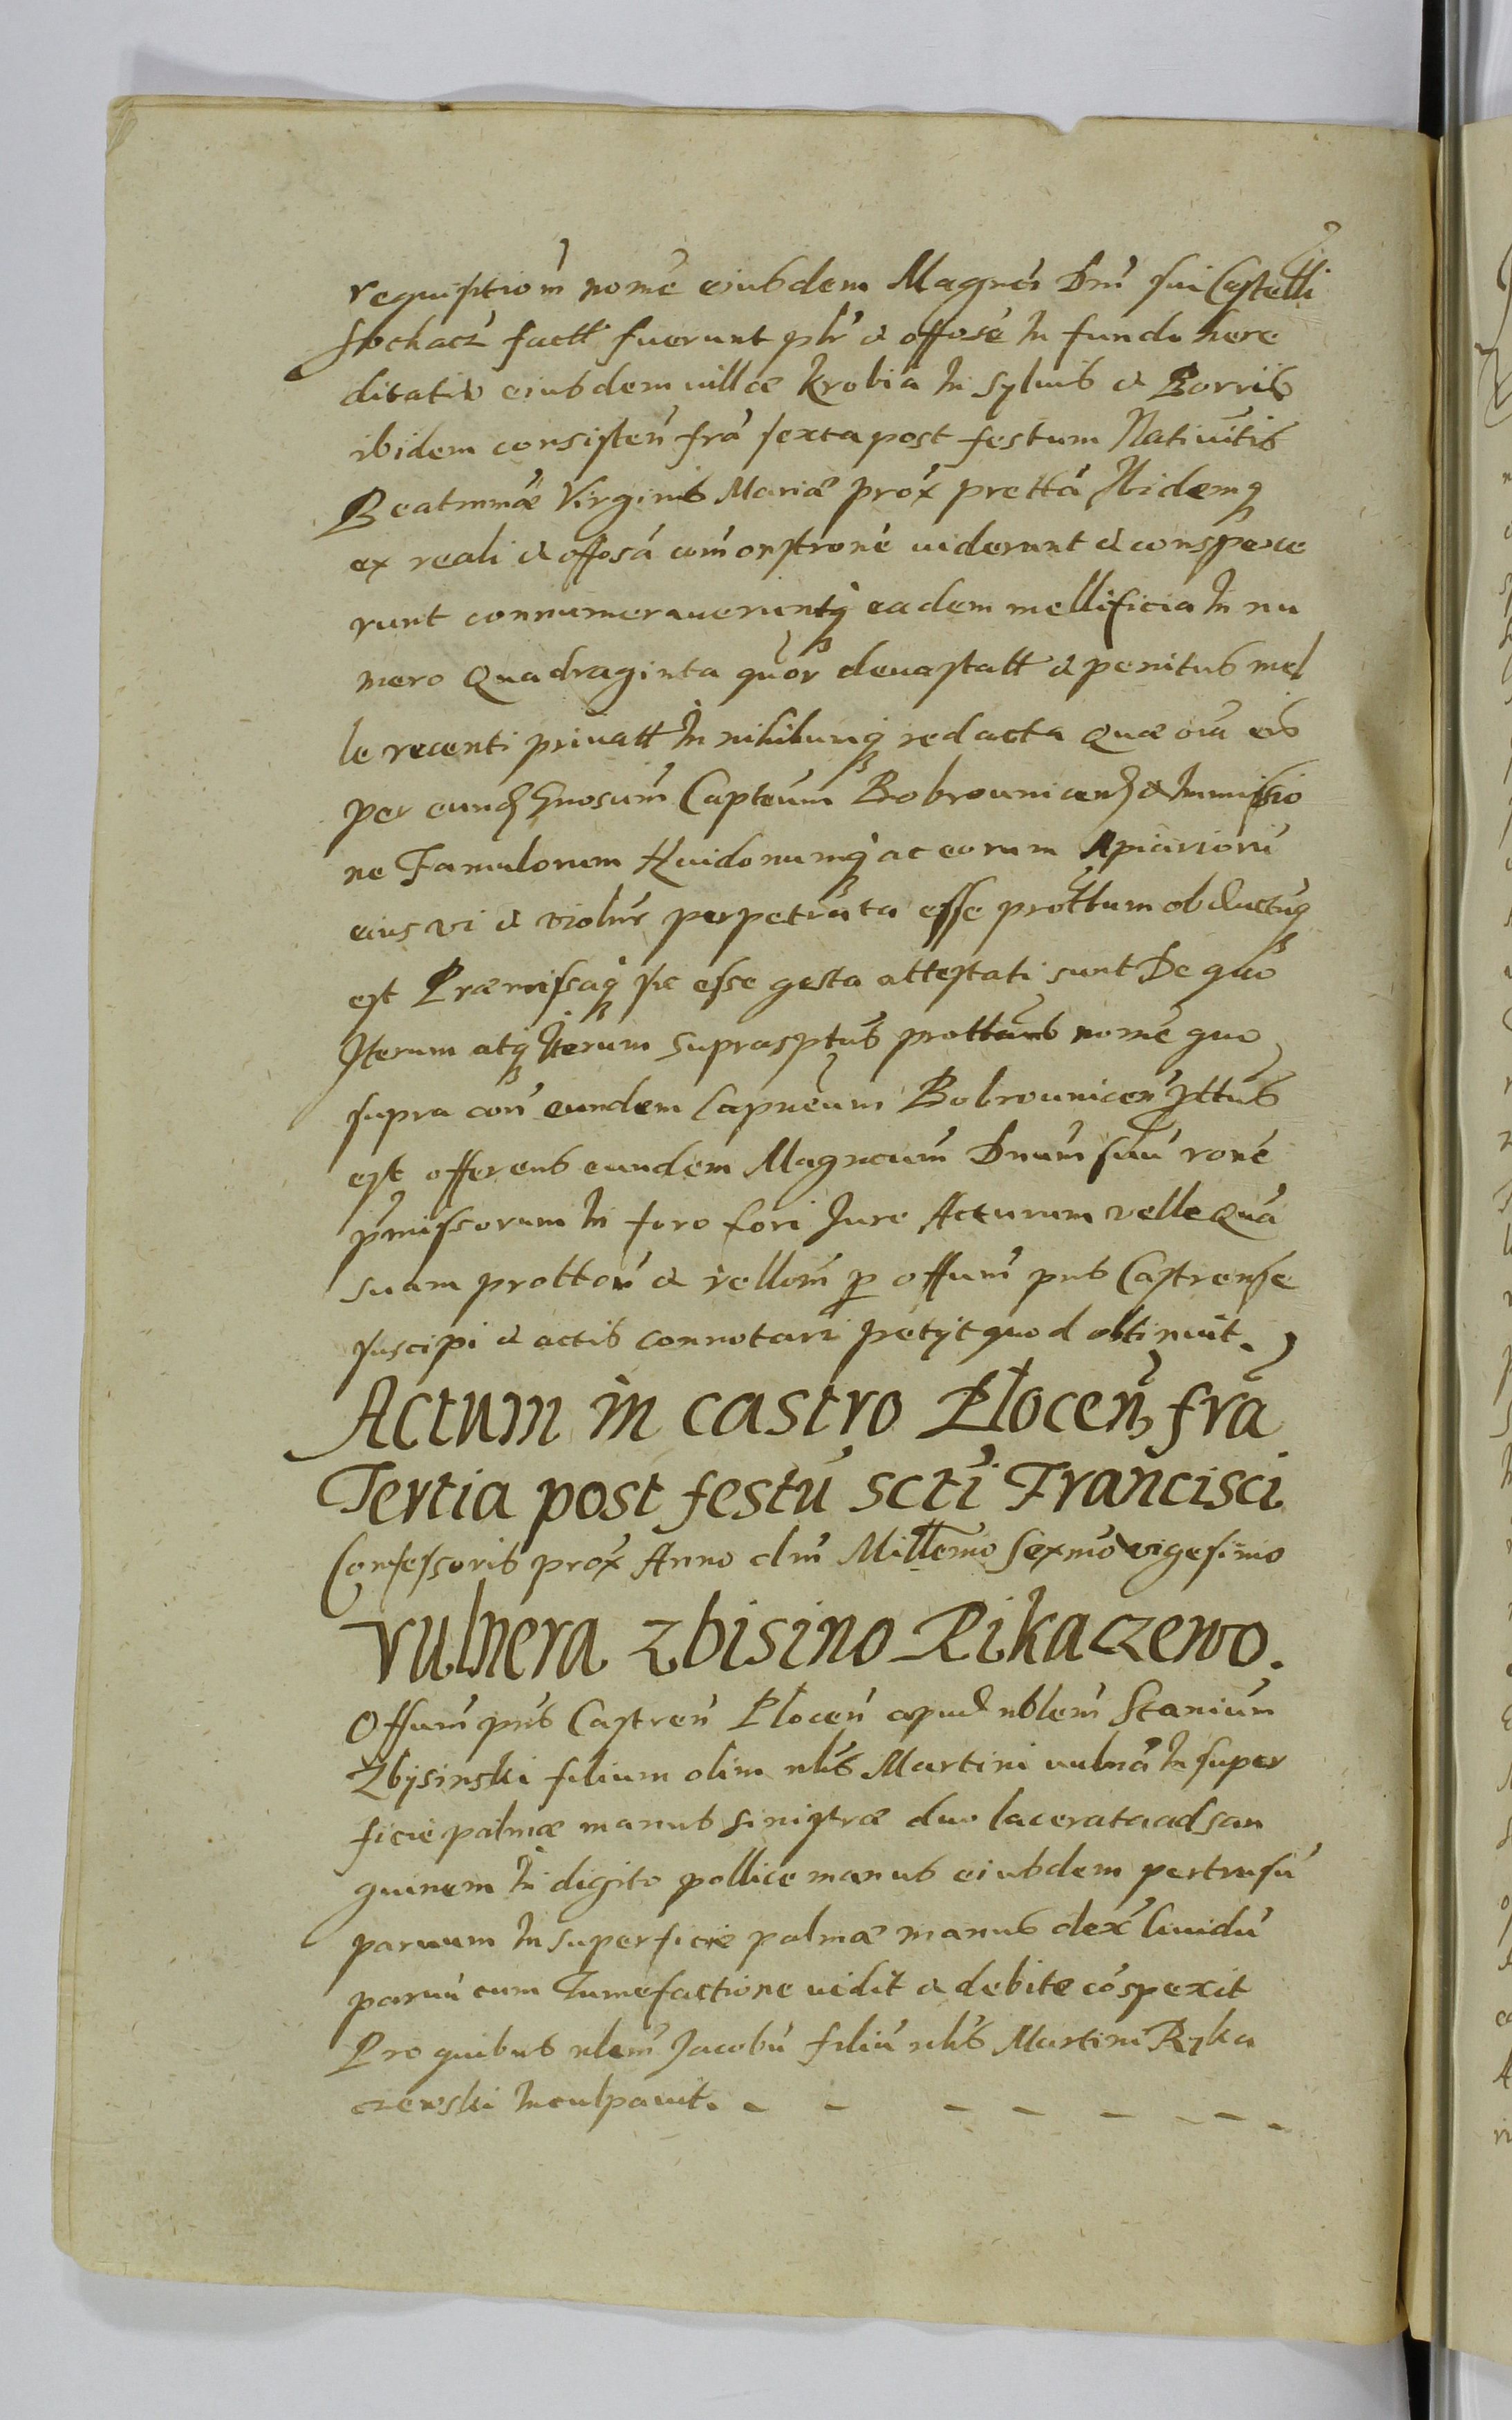 requisitiom nome eiusdem Magnci Dni sui Castelli
Sochacz factt fuerunt plr & offose In fundo here
ditario eiusdem villæ Krobia In Sylvis & Borris
ibidem consisten fra sexta post festum Nativitis
Beatmmæ Virginis Mariæ prox prettа Ibidemq
ex reali & offosa comonstrone viderunt & conspexe
runt connumeraveruntq eadem mellificia In nu
mero Quadraginta quor devastatt & penitus mel
le recenti privatt In nihilumq redacta Quæ oia eis
per eund Gnosum Capteum Bobrounicen ex Immissio
ne Famulorum Kuidonumq ac eorum Apiariorũ
eius vi & violnr perpetrata esse prottum obductuq
est Præmissaq sic esse gesta attestati sunt De quo
Iterum atq Iterum suprasptus prottans nome quo
supra con eundem Capneum Bobrounicen Pttus
est offerens eundem Magncum Dnum suũ rone
pmissorum In foro fori Jure Acturum velle Qua
suam protton & rellom p offum pns Castrense
suscipi & actis connotari petijt quod obtinuit.
Actum in castro Plocen, fra
Tertia post festũ scti Francisci
Confessoris prox Anno dni Millemo Sexmo vigesimo
Vulnera Zbisino Rikaczewo.
Offum pns Castren Plocen apud nblem Stanium
Zbysinski filium olim nlis Martini vulna In super
ficie palmæ manus sinistræ duo lacerata ad san
guinem In digito pollice manus eiusdem pertrusũ
parvum In superficie palmæ manus dex lividũ
parvũ cum Tumefactione vidit & debite cõspexit
Pro quibus nlem Jacobũ filiũ nlis Martini Ryka
czewski Inculpavit. - - - - - - - -